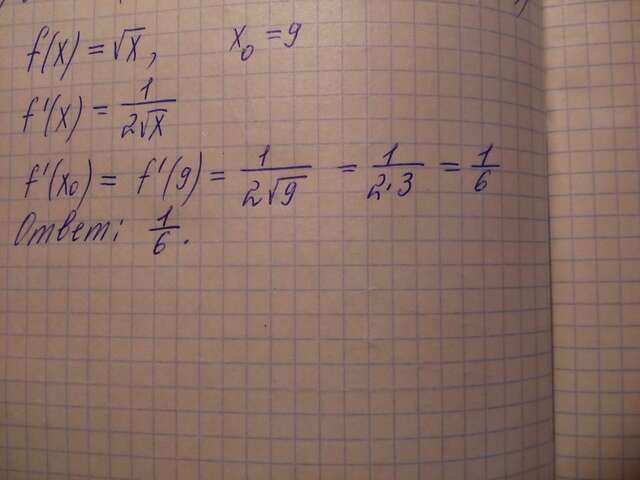 f(x) = √x, x₀ = 9
f'(x) = 1/(2√x)
f'(x₀) = f'(9) = 1/(2√9) = 1/(2·3) = 1/6
Ответ: 1/6.